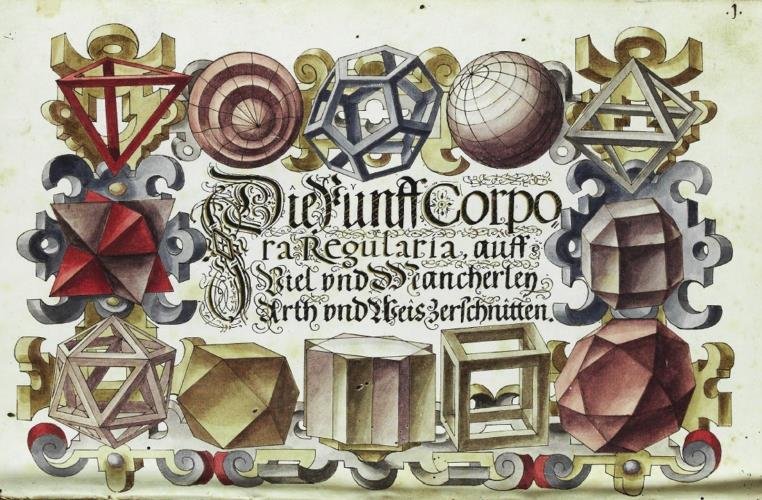 .1.
Die Fünff Corpo
ra Regularia, auff
Viel vnd Mancherley
Arth vnd Weis Zerschnitten.